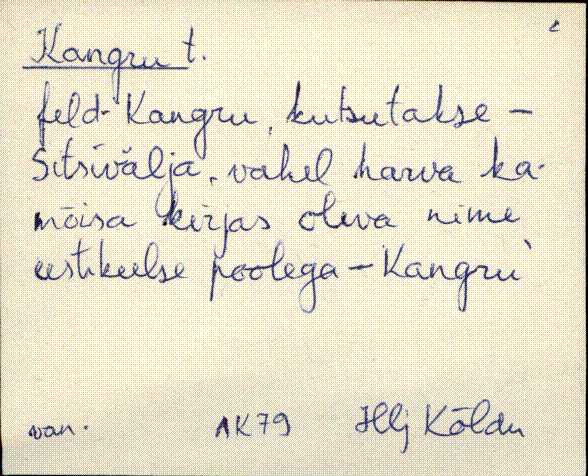 Kangru t.
feld-Kangru, kutsutakse -
Sitsivälja, vahel harva ka-
mõisa kirjas oleva nime
eestikeelse poolega - Kangru
van. AK79 Hlj Kõldu